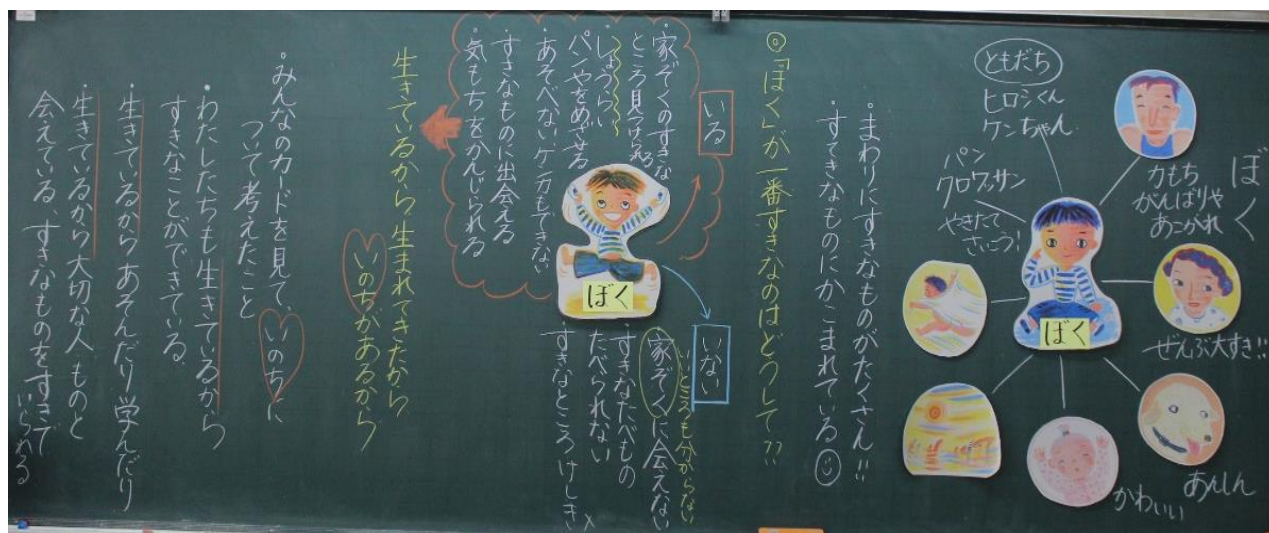 ぼく
ともだち
ヒロシくん
ケンちゃん
力もち
がんばりや
あこがれ
パン
クロワッサン
やきたて
さいこう!
ぼく
ぜんぶ大すき!!
あんしん
かわいい
・まわりにすきなものがたくさん!!
すてきなものにかこまれている
◎「ぼく」が一番すきなのはどうして??
いる
・家ぞくのすきな
ところ見つけられる
・しょうらい
パンやをめざせる
・あそべない、ケンカもできない
・すきなものに出会える
・気もちをかんじられる
ぼく
いない
いいところも分からない
・家ぞくに会えない
・すきなたべもの
たべられない
・すきなところけしき×
生きているから、生まれてきたから
いのちがあるから
・みんなのカードを見て、いのちに
ついて考えたこと
・わたしたちも生きているから
すきなことができている。
・生きているからあそんだり学んだり
・生きているから大切な人、ものと
会えている、すきなものをすきで
いられる